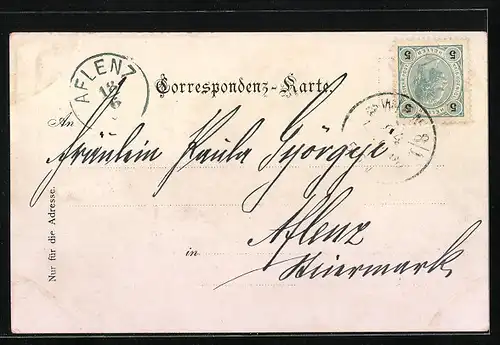 AFLENZ
18
6
5 5
HELLER
5 5
Correspondenz-Karte.
An
Fräulein Paula György
in Aflenz
Steiermark
Nur für die Adresse.